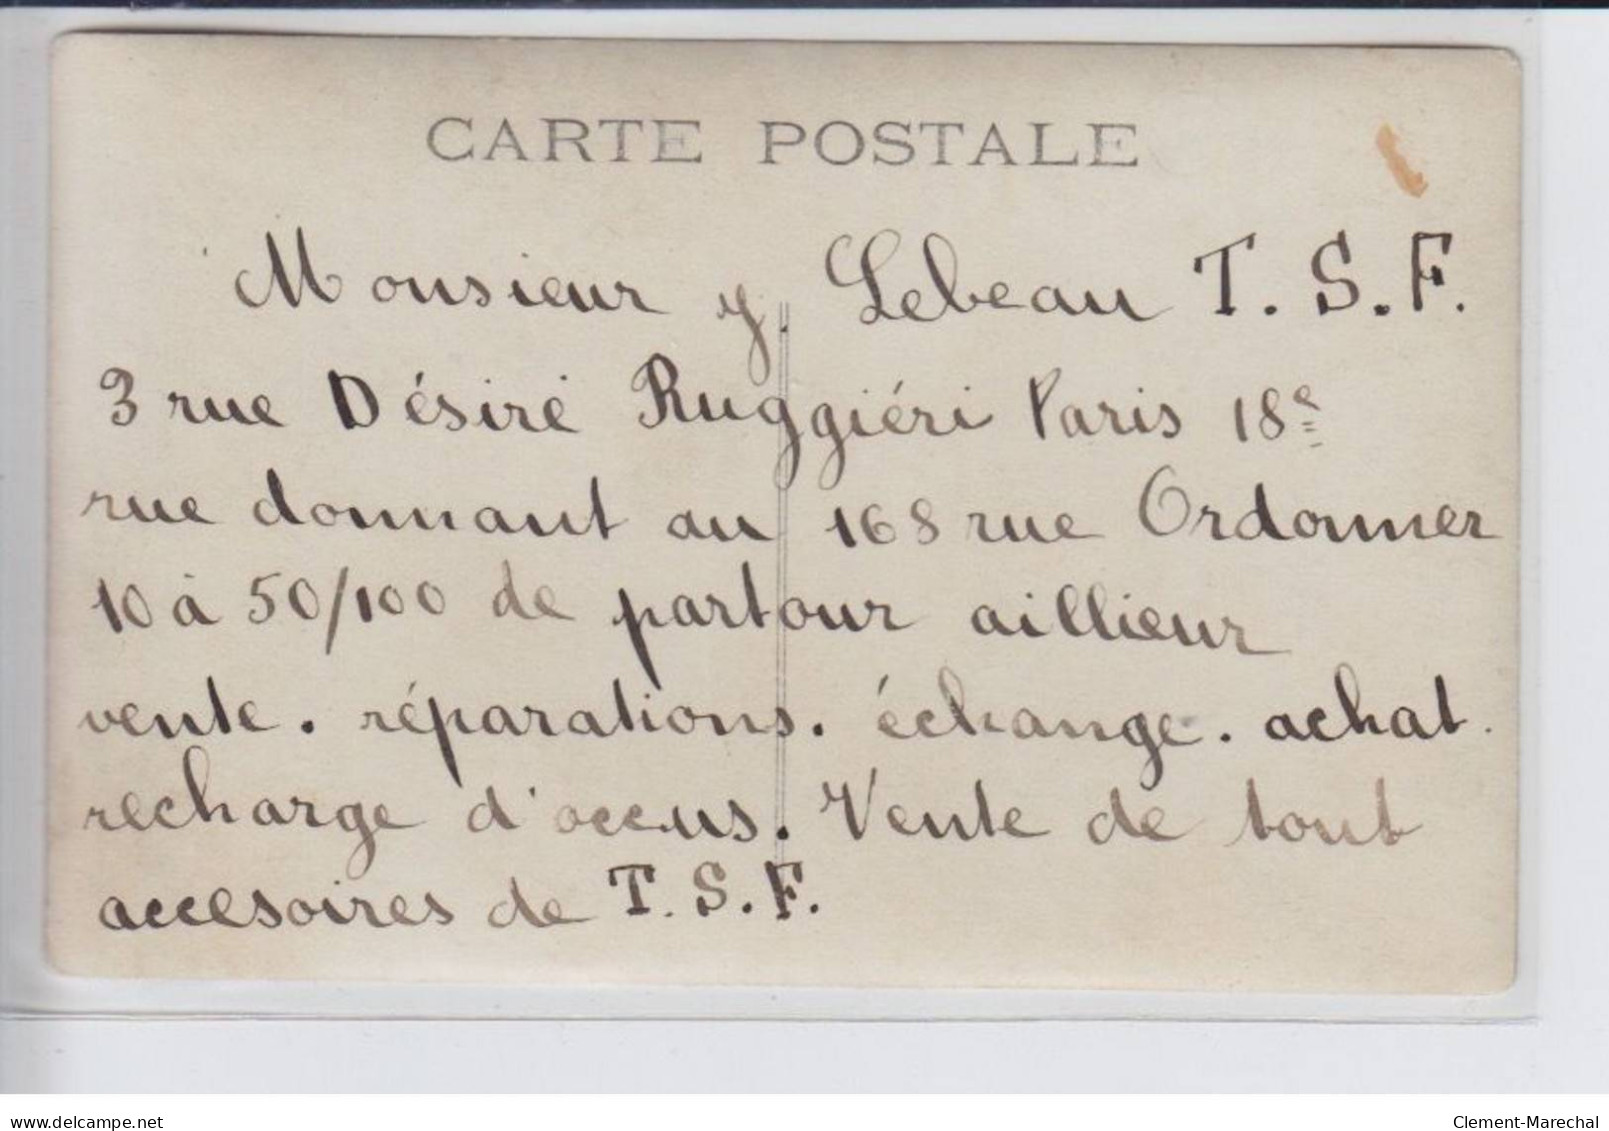 CARTE POSTALE
Monsieur y. Lebeau T. S. F.
3 rue Désiré Ruggiéri Paris 18e
rue donnant au 168 rue Ordonner
10 à 50/100 de partour aillieur
vente. réparations. échange. achat.
recharge d'accus. Vente de tout
accesoires de T. S. F.
www.delcampe.net
Clement-Marechal